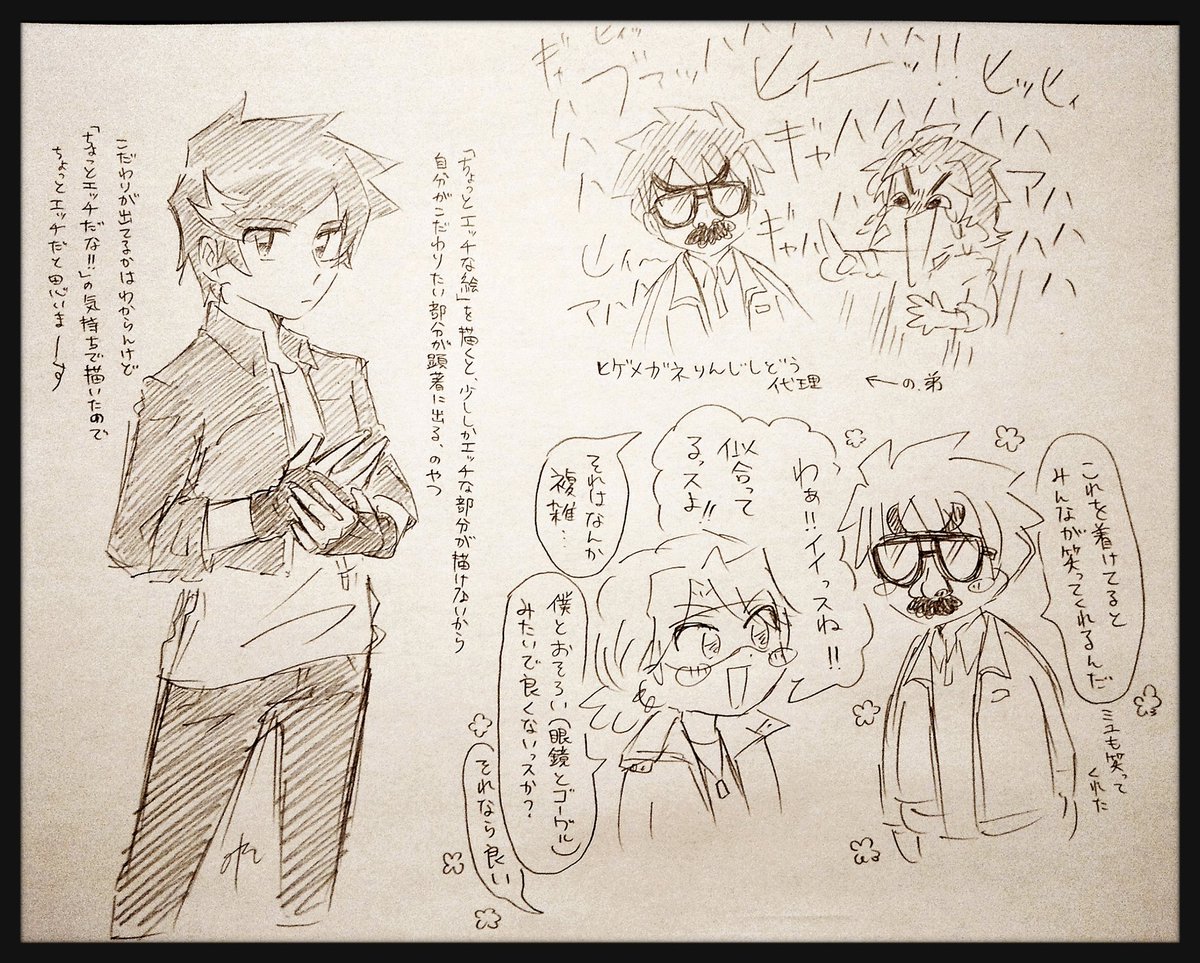 ヒィッ
ギャ
ブァッ
ハハ
ヒィーッ!!
ヒッヒィ
ギャハハハハハ
アハハハ
ギャハハ
ヒィ〜
アハハ
ヒゲメガネりんじしどう
代理
←の、弟
「ちょっとエッチな絵」を描くと、少ししかエッチな部分が描けないから
自分がこだわりたい部分が顕著に出る、のやつ
こだわりが出てるかはわからんけど
「ちょっとエッチだな!!」の気持ちで描いたので
ちょっとエッチだと思いまーす
これを着けてると
みんなが笑ってくれるんだ
ミユも笑って
くれた
わぁ!!イイっスね!!
似合って
るっスよ!!
それはなんか
複雑…
僕とおそろい(眼鏡とゴーグル)
みたいで良くないっスか?
それなら良い